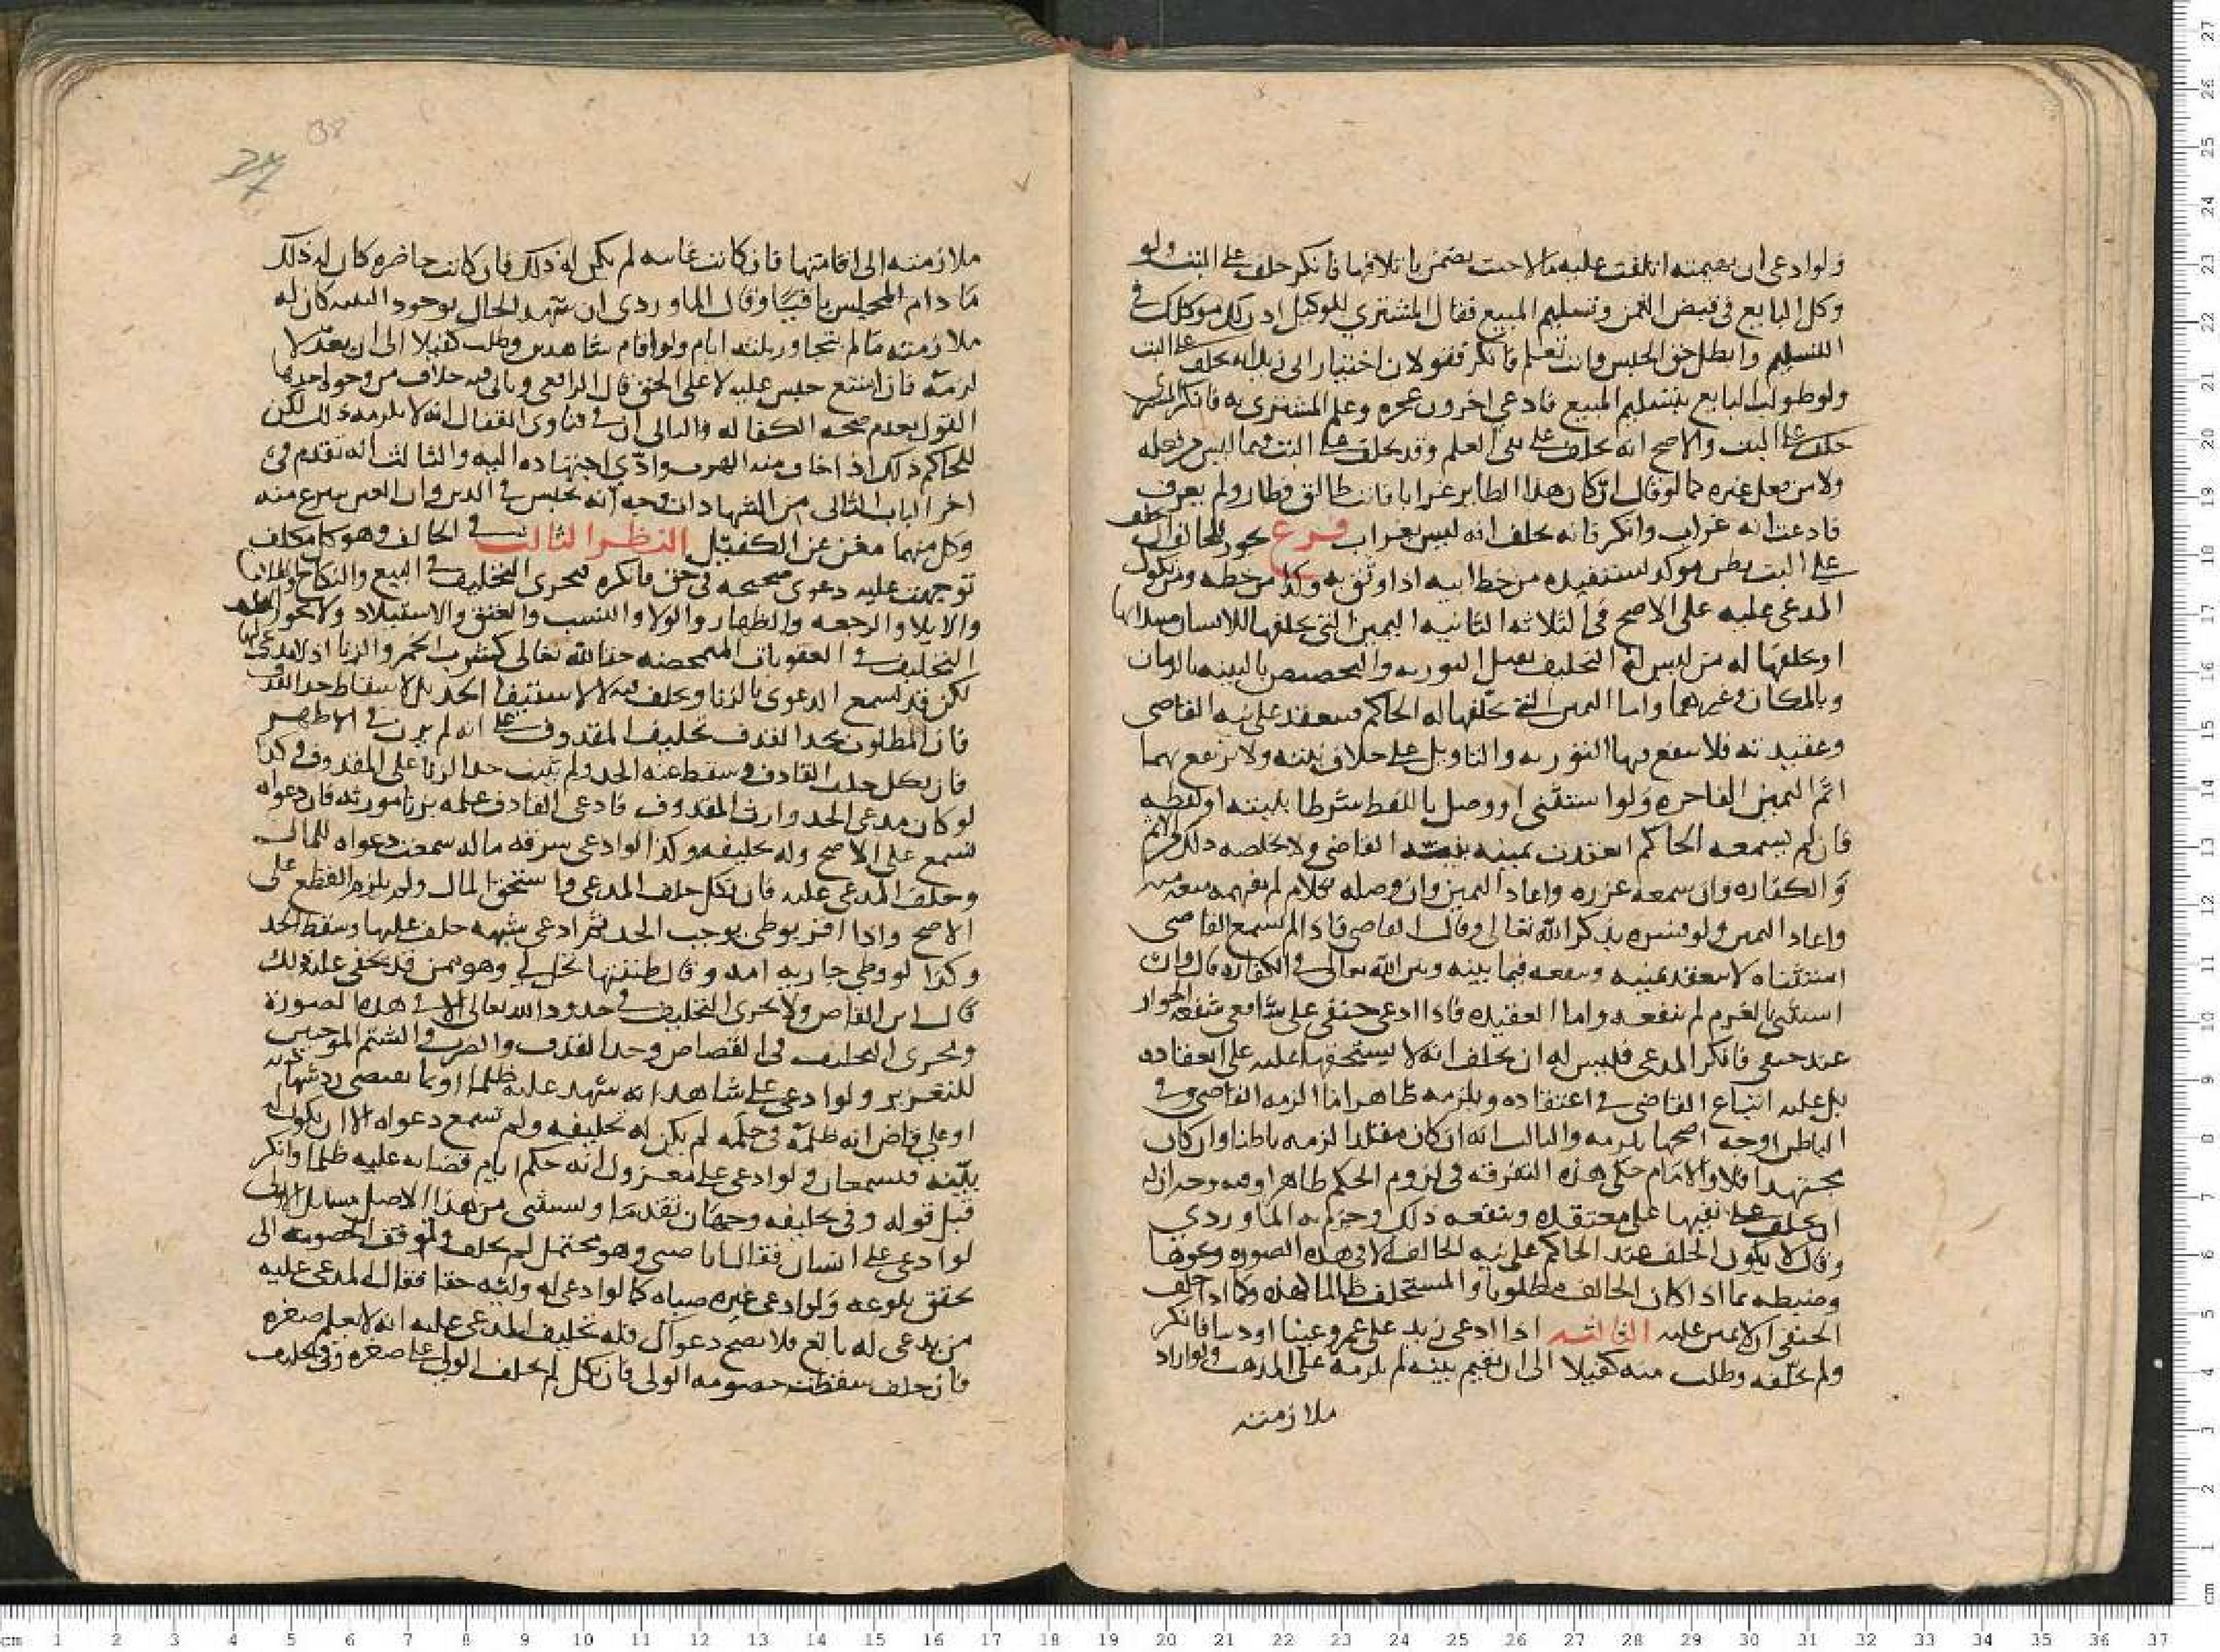 ولو ادعى ان بهيمته اتلفت عليه مالا حيث يضمن باتلافها فانكر حلف على البت ولو
وكل البايع في قبض الثمن وتسليم المبيع فقال المشتري للوكيل اذن لك موكلك في
التسليم وابطل حق الحبس وانت تعلم فانكر فقولان اختيار ابي زيد انه يحلف على البت
ولو طولب البايع بتسليم المبيع فادعى اخرون عجزه وعلم المشتري به فانكر المشتري
حلف على البت والاصح انه يحلف على نفي العلم وقد يحلف على البت فيما ليس من فعله
ولا من فعل غيره كما لو قال ان كان هذا الطاير غرابا فانت طالق فطار ولم يعرف
فادعت انه غراب وانكر فانه يحلف انه ليس بغراب فرع يجوز للحالف ان يحلف
على البت بظن موكد يستفيده من خط ابيه اذا وثق به وكذا من خطه ومن نكول
المدعى عليه على الاصح في الثلاثه الثانيه اليمين التي يحلفها الانسان مبتدا بها
او يحلفها له من ليس له التحليف تقبل التوريه والتخصيص بالنيه بالزمان
وبالمكان وغيرهما واما اليمين التي يحلفها له الحاكم فينعقد على نيه القاضي
وعقيدته فلا ينفع فيها التوريه والتاويل على خلاف نيته ولا تدفع بهما
اثم اليمين الفاجره ولو استثنى او وصل باللفظ شرطا بنيته او لفظه
فان لم يسمعه الحاكم انعقدت يمينه بنيته القاضي ولا يخلصه ذلك من الاثم
والكفاره وان سمعه عزره واعاد اليمين وان وصله بكلام لم يفهمه منعه منه
واعاد اليمين ولو فسره بذكر الله تعالى وقال القاضي فاذا لم يسمع القاضي
استثناه لا ينعقد يمينه وينفعه فيما بينه وبين الله تعالى في الكفاره قال وان
استثنى بالعزم لم ينفعه واما العقيده فاذا ادعى حنفي على شافعي شفعه الجوار
عند حنفي فانكر المدعى فليس له ان يحلف انه لا يستحقها عليه على اعتقاده
بل عليه اتباع القاضي في اعتقاده ويلزمه ظاهرا ما الزمه القاضي وفي
الباطن اوجه اصحها يلزمه والثالث انه ان كان مقلدا لزمه باطنا وان كان
مجتهدا فلا والامام حكى هذه التفرقه في لزوم الحكم ظاهرا وفيه وجه ان له
ان يحلف على نفيها على معتقده وينفعه ذلك وجزم به الماوردي
وقال لا يكون الحلف عند الحاكم على نيه الحالف الا في هذه الصوره ونحوها
وضبطه بما اذا كان الحالف مظلوما والمستحلف ظالما كهذه وكما اذا حلف
الحنفي ان لا يمين عليه الثالثه اذا ادعى زيد على عمرو عينا او دينا فانكر
ولم يحلفه وطلب منه كفيلا الى ان يقيم بينه لم يلزمه على المذهب ولو اراد
ملازمته
38
37
ملازمته الى اقامتها فان كانت غايبه لم يكن له ذلك فان كانت حاضره كان له ذلك
ما دام المجلس باقيا وقال الماوردي ان شهد الحال بوجود البينه كان له
ملازمته ما لم تتجاوز ثلثه ايام ولو اقام شاهدين وطلب كفيلا الى ان يعدلا
لزمه فان امتنع حبس عليه لا على الحق قال الرافعي وياتي فيه خلاف من وجوه احدها
القول بعدم صحه الكفاله والثاني ان في فتاوى القفال انه لا يلزمه ذلك لكن
للحاكم ذلك اذا خاف منه الهرب وادى اجتهاده اليه والثالث انه تقدم في
اخر الباب الثاني من الشهادات وجه انه يحبس في الدين وان العين ينتزع منه
وكل منهما مغن عن الكفيل النظر الثالث في الحالف وهو كل مكلف
توجهت عليه دعوى صحيحه في حق فانكره فيجرى التحليف في البيع والنكاح والطلاق
والايلا والرجعه والظهار والولا والنسب والعتق والاستيلاد ولا يجوز
التحليف في العقوبات المتمحضه حقا لله تعالى كشرب الخمر والزنا اذ لا مدعى لها
لكن قد تسمع الدعوى بالزنا ويحلف فيه لا لاستيفا الحد بل لاسقاط حد القذف
فان المطلوب بحد القذف تحليف المقذوف على انه لم يزن في الاظهر
فان نكل حلف القاذف وسقط عنه الحد ولم يثبت حد الزنا على المقذوف وكذا
لو كان مدعي الحد وارث المقذوف فادعى القاذف علمه بزنا مورثه فان دعواه
تسمع على الاصح وله تحليفه وكذا لو ادعى سرقه ماله سمعت دعواه للمال
وحلف المدعى عليه فان نكل حلف المدعي واستحق المال ولم يلزم القطع على
الاصح واذا اقر بوطي يوجب الحد ثم ادعى شبهه حلف عليها وسقط الحد
وكذا لو وطي جاريه امه وقال ظننتها تحل لي وهو ممن قد يخفى عليه ذلك
قال ابن القاص ولا يجرى التحليف في حدود الله تعالى الا في هذه الصورة
ويجرى التحليف في القصاص وحد القذف والضرب والشتم الموجبين
للتعزير ولو ادعى على شاهد انه شهد عليه ظلما او بما يقتضي رد شهادته
او على قاض انه ظلمه في حكمه لم يكن له تحليفه ولم تسمع دعواه الا ان يكون له
بينه فيسمعان ولو ادعى على معزول انه حكم ايام قضايه عليه ظلما وانكر
قبل قوله وفي تحليفه وجهان تقدما ويستثنى من هذا الاصل مسايل الاولى
لو ادعى على انسان فقال انا صبي وهو محتمل لم يحلف ولتوقف الخصومه الى
تحقق بلوغه ولو ادعى غيره صباه كما لو ادعى له وليه حقا فقال المدعى عليه
من يدعى له بالغ فلا يصح دعواك فله تحليف المدعى عليه انه لا يعلم صغره
فان حلف سقطت خصومه الولي فان نكل لم يحلف الولي على صغره وفي تحليف